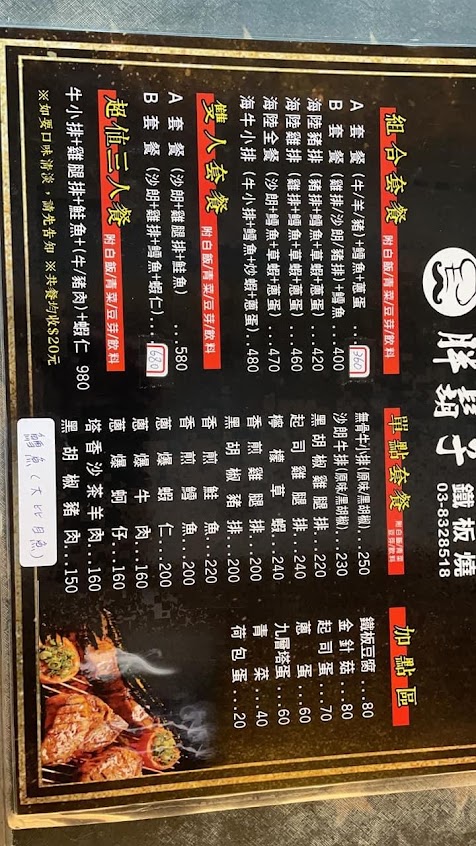 胖鬍子 鐵板燒
03-8328518
組合套餐 附白飯/青菜/豆芽/飲料
A 套 餐 (牛/羊/豬)+鱈魚+蔥蛋 ...360
B 套 餐 (雞排/沙朗/豬排)+鱈魚 ...400
海陸豬排 (豬排+鱈魚+草蝦+蔥蛋) ...420
海陸雞排 (雞排+鱈魚+草蝦+蔥蛋) ...460
海陸全餐 (沙朗+鱈魚+草蝦+蔥蛋) ...470
海牛小排 (牛小排+鱈魚+炒蝦+蔥蛋) ...480
雙人套餐 附白飯/青菜/豆芽/飲料
A 套 餐 (沙朗+雞腿排+鮭魚) ...580
B 套 餐 (沙朗+雞排+鱈魚+蝦仁) ...680
超值三人餐 附白飯/青菜/豆芽/飲料
牛小排+雞腿排+鮭魚+(牛/豬肉)+蝦仁 980
※如要口味清淡，請先告知 ※共餐均收$20元
單點套餐 附白飯/青菜 豆芽/飲料
無骨牛小排(原味/黑胡椒)...250
沙朗牛排(原味/黑胡椒)...230
黑胡椒雞腿排...220
起司雞腿排...240
檸檬草蝦...240
香煎雞腿排...200
黑胡椒豬排...200
香煎鮭魚...220
香煎鱈魚...200
蔥爆蝦仁...200
蔥爆牛肉...160
蔥爆蚵仔...160
塔香沙茶羊肉...160
黑胡椒豬肉...150
鱈魚(大比目魚)
加點區
鐵板豆腐...80
金針菇...80
起司蛋...70
蔥蛋...60
九層塔蛋...60
青菜...40
荷包蛋...20